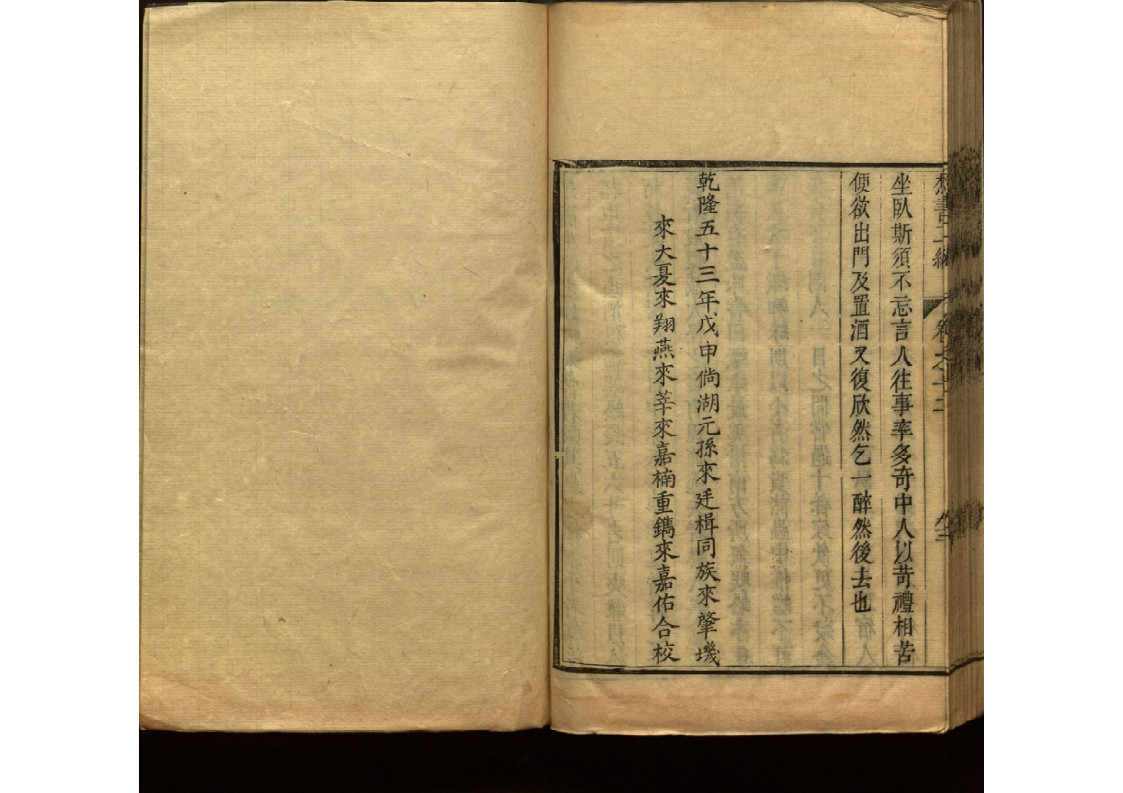 坐臥斯須不忘言人往事率多奇中人以苛禮相苦
便欲出門及置酒又復欣然乞一醉然後去也
乾隆五十三年戊申倘湖元孫來廷楫同族來肇璣
來大夏來翔燕來莘來嘉楠重鐫來嘉佑合校